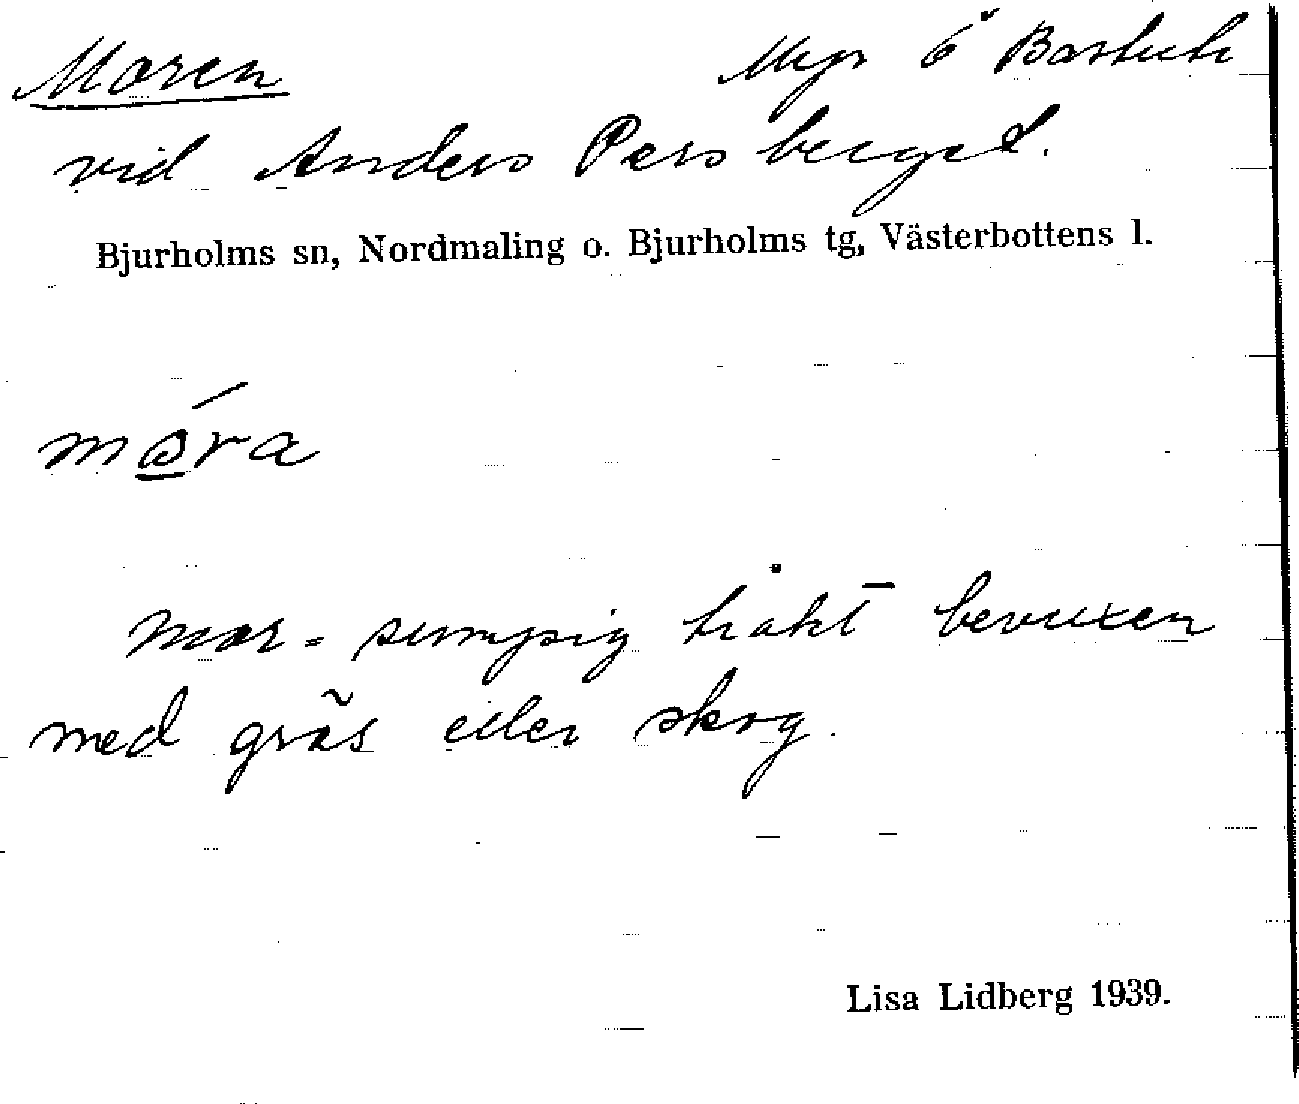 Moren Myr ö Bastuti
vid Anders Persberget.
Bjurholms sn, Nordmaling o. Bjurholms tg, Västerbottens l.
móra
mor = sumpig trakt bevuxen
med gräs eller skog.
Lisa Lidberg 1939.